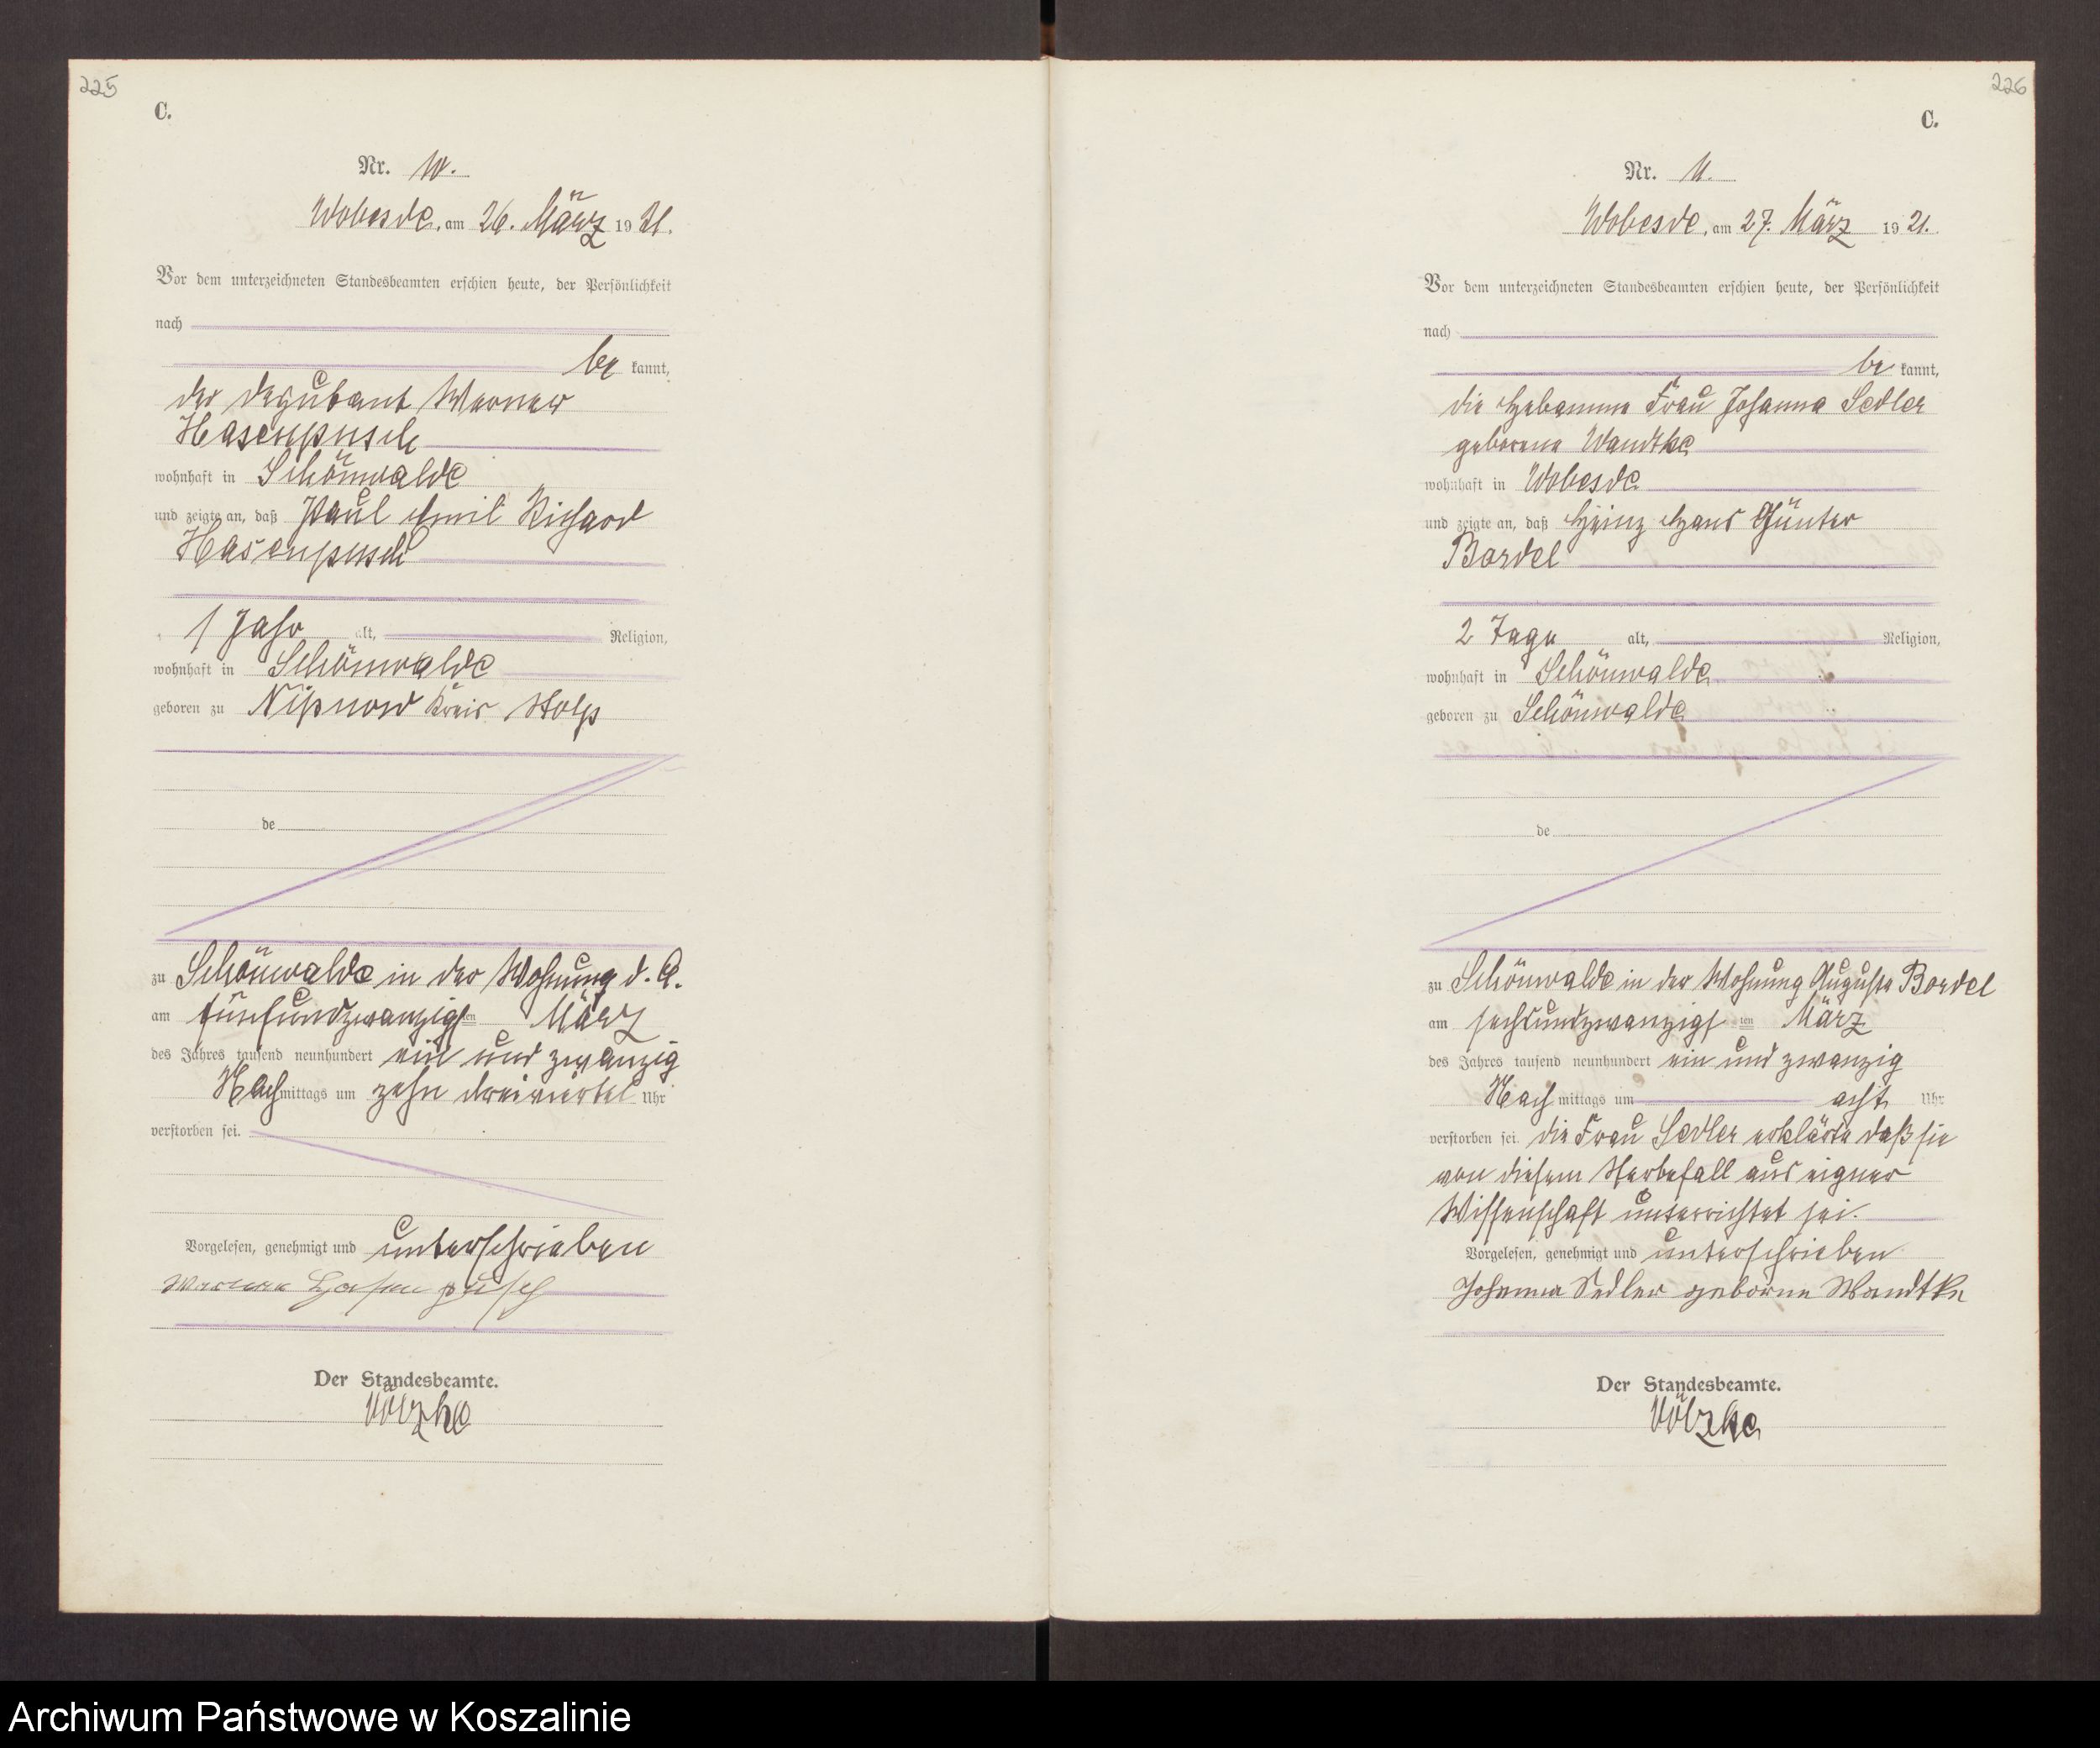 225
C.
Nr. 10.
Wobesde, am 26. März 1921.
Vor dem unterzeichneten Standesbeamten erschien heute, der Persönlichkeit
nach
be kannt,
der Deputant Werner
Hasenpusch
wohnhaft in Schönwalde
und zeigte an, daß Paul Emil Richard
Hasenpusch
1 Jahr alt, Religion,
wohnhaft in Schönwalde
geboren zu Nipnow Kreis Stolp
de
zu Schönwalde in der Wohnung d. A.
am fünfundzwanzigsten März
des Jahres tausend neunhundert ein und zwanzig
Nachmittags um zehn dreiviertel Uhr
verstorben sei.
Vorgelesen, genehmigt und unterschrieben
Werner Hasenpusch
Der Standesbeamte.
Völzke
226
C.
Nr. 11.
Wobesde, am 27. März 1921.
Vor dem unterzeichneten Standesbeamten erschien heute, der Persönlichkeit
nach
be kannt,
die Hebamme Frau Johanna Sedler
geborene Wandtke
wohnhaft in Wobesde
und zeigte an, daß Heinz Hans Günter
Bardel
2 Tage alt, Religion,
wohnhaft in Schönwalde
geboren zu Schönwalde
de
zu Schönwalde in der Wohnung Auguste Bardel
am sechsundzwanzigsten März
des Jahres tausend neunhundert ein und zwanzig
Nachmittags um acht Uhr
verstorben sei. die Frau Sedler erklärte daß sie
von diesem Sterbefall aus eigner
Wissenschaft unterrichtet sei.
Vorgelesen, genehmigt und unterschrieben
Johanna Sedler geborne Wandtke
Der Standesbeamte.
Völzke
Archiwum Państwowe w Koszalinie